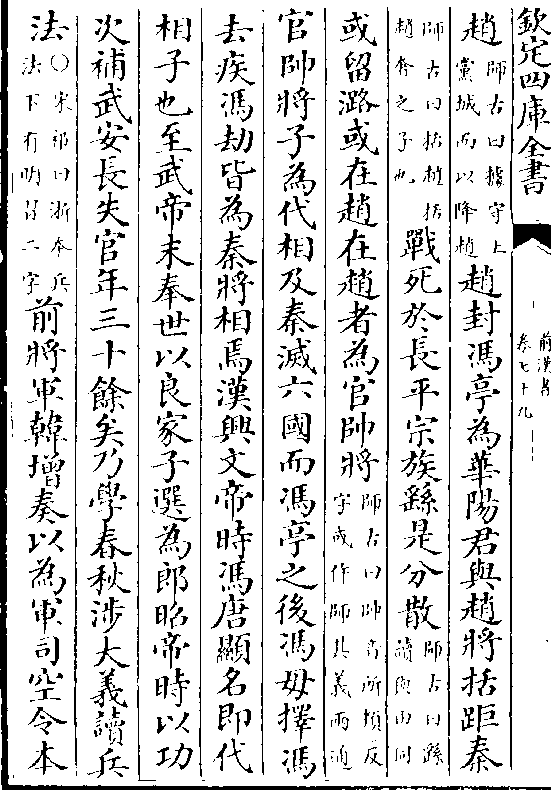 欽定四庫全書
前漢書
卷七十九
趙師古曰據守上黨城而以降趙趙封馮亭為華陽君與趙將括距秦
師古曰括趙括趙奢之子也戰死於長平宗族繇是分散師古曰繇讀與由同
或留潞或在趙在趙者為官帥將師古曰帥音所類反字或作師其義兩通
官帥將子為代相及秦滅六國而馮亭之後馮毋擇馮
去疾馮劫皆為秦將相焉漢興文帝時馮唐顯名即代
相子也至武帝末奉世以良家子選為郎昭帝時以功
次補武安長失官年三十餘矣乃學春秋涉大義讀兵
法○宋祁曰浙本兵法下有明習二字前將軍韓增奏以為軍司空令本